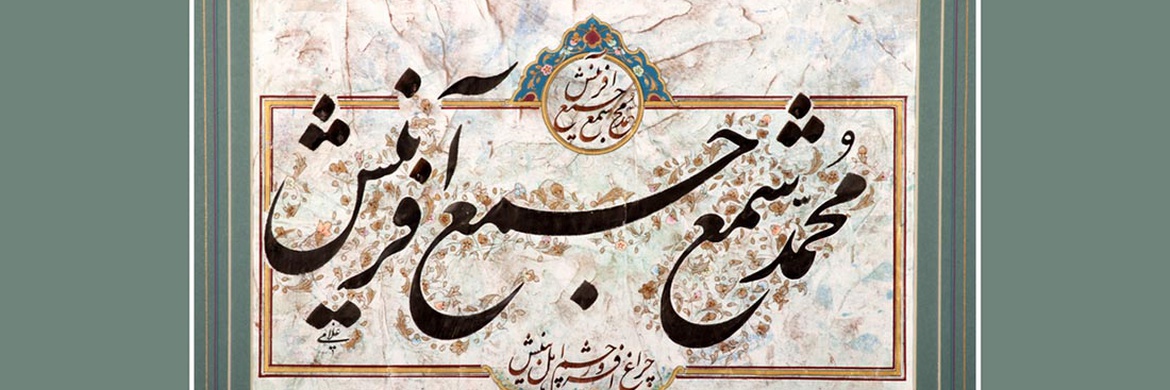 محمد شمع جمع آفرینش
محمّدُ شمع جمع آفرینش
غلامی
چراغ افروز چشم اهل بینش